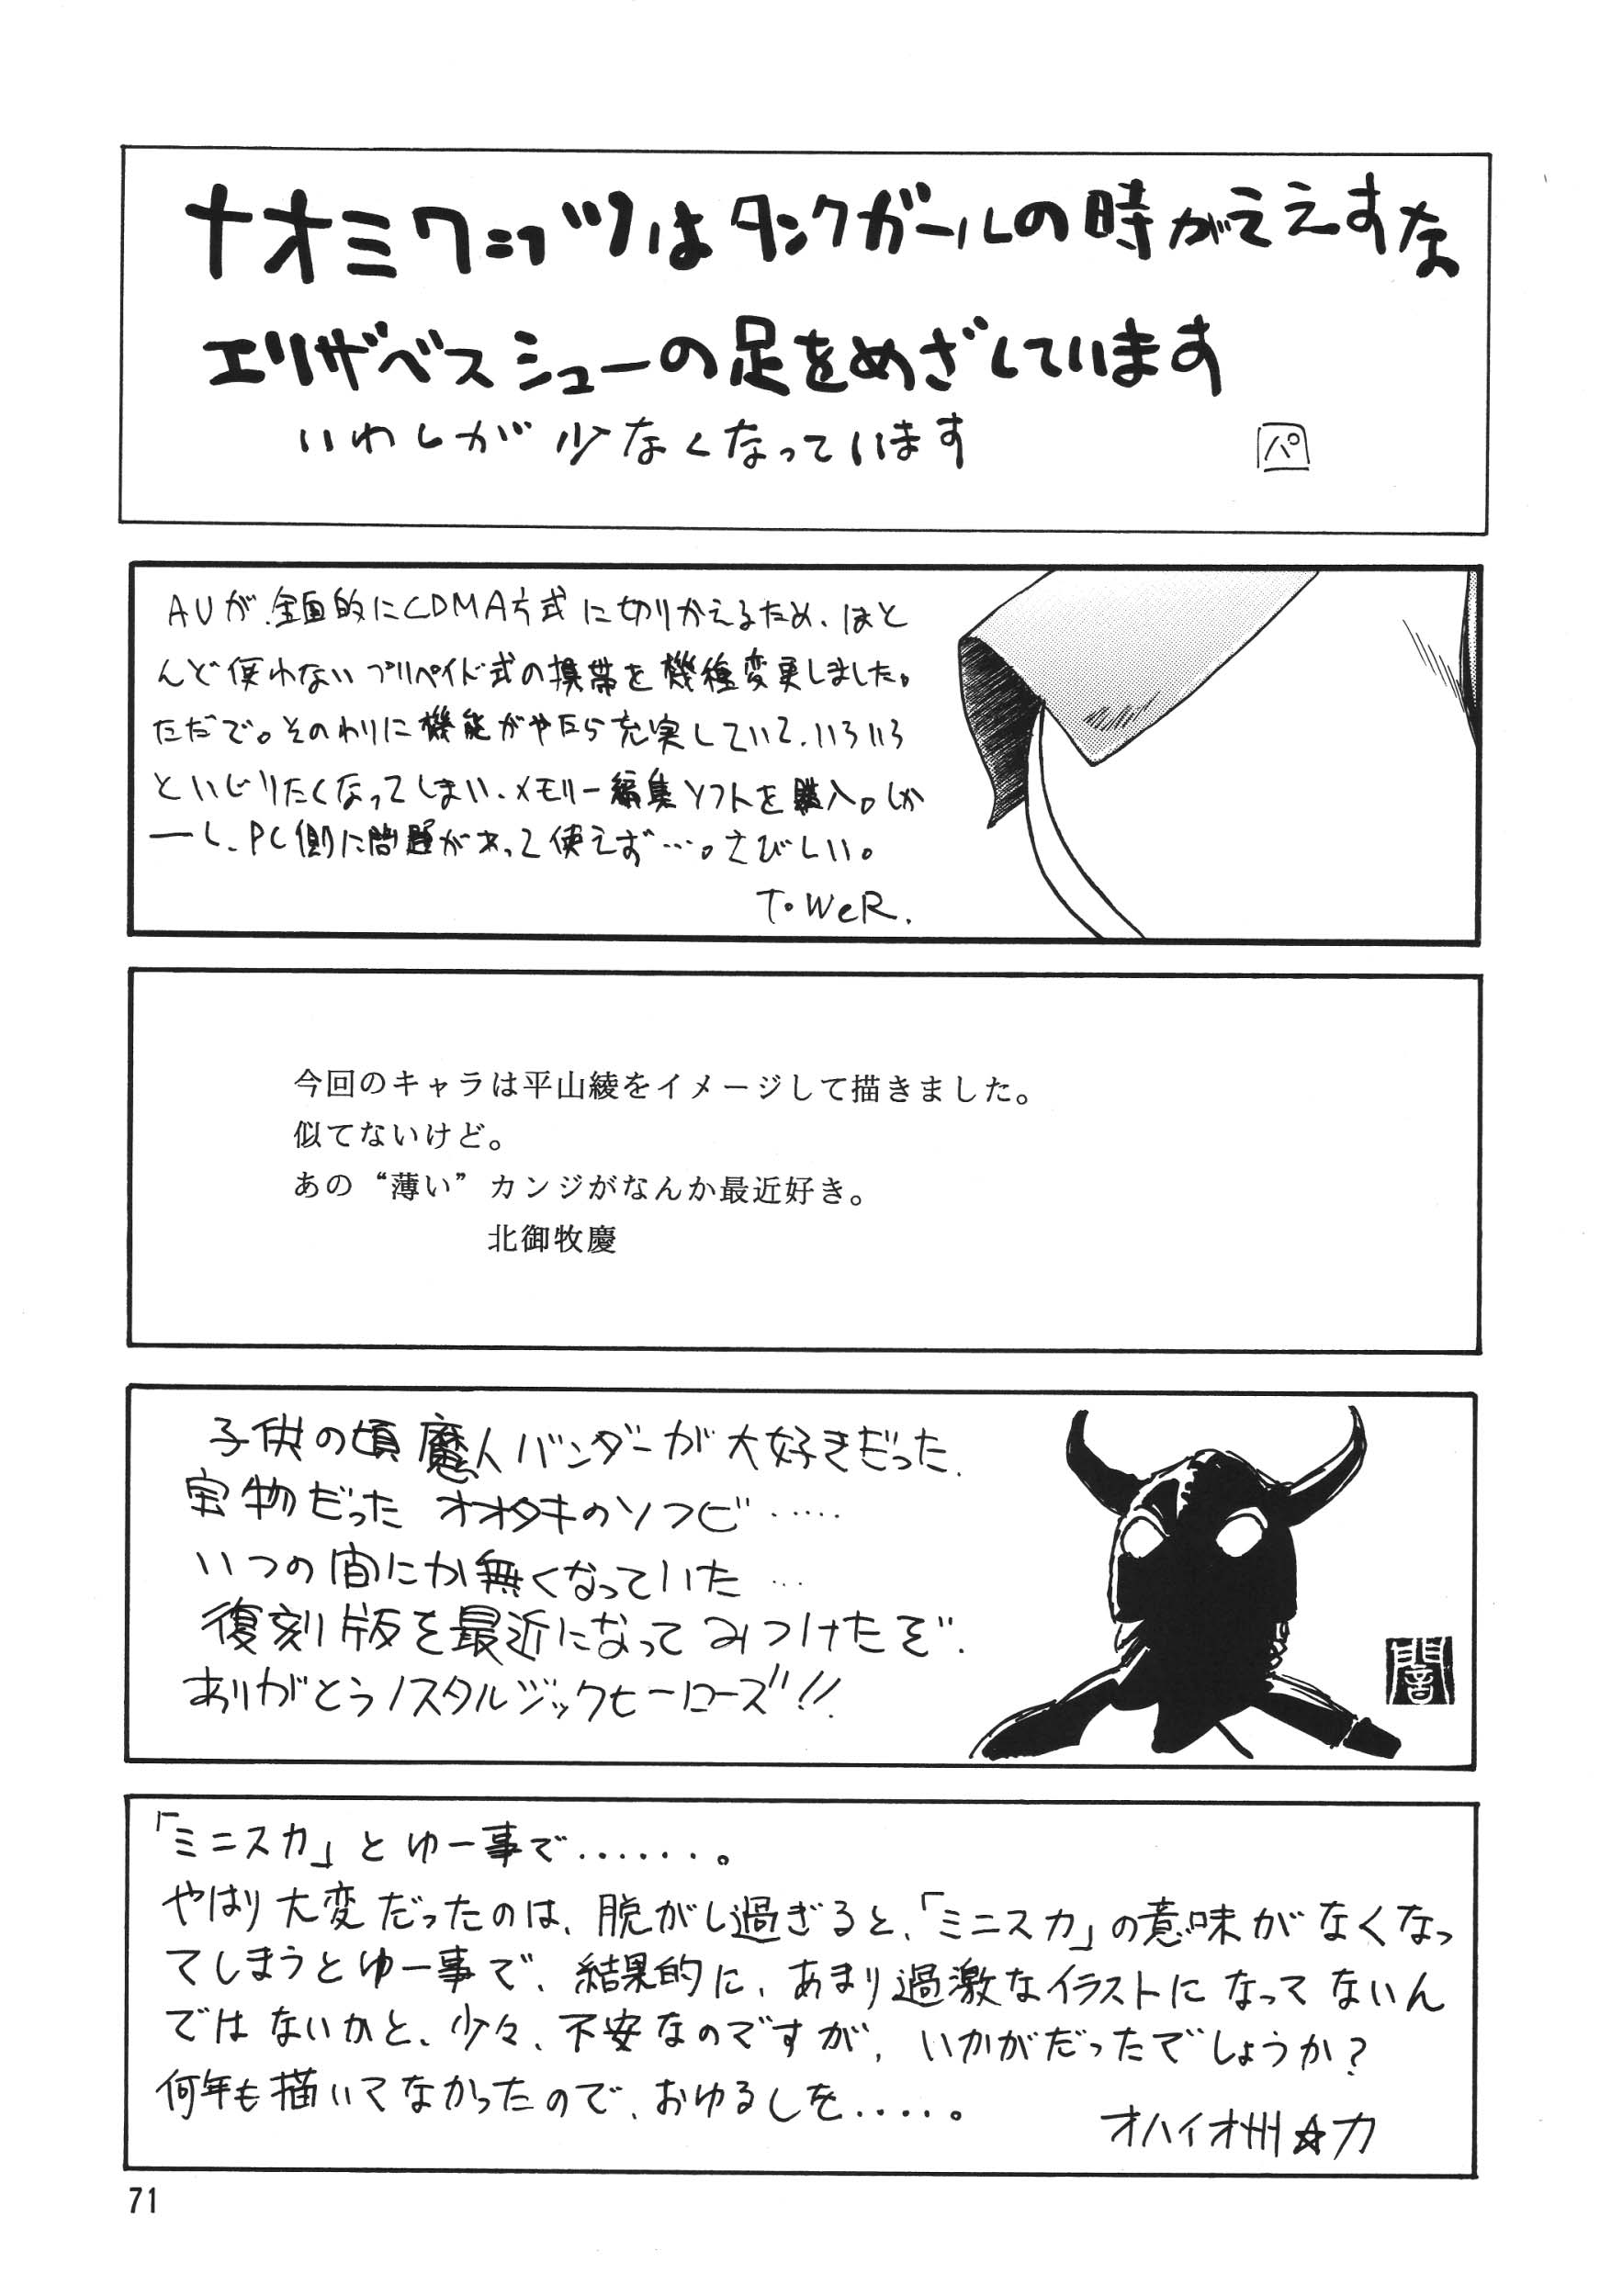 ナオミワッツはタンクガールの時がええすな
エリザベスシューの足をめざしています
いわしが少なくなっています
パ
AUが全面的にCDMA方式に切りかえるため、ほと
んど使わないプリペイド式の携帯を機種変更しました。
ただで。そのわりに機能がやたら充実していて、いろいろ
といじりたくなってしまい、メモリー編集ソフトを購入。しか
ーし、PC側に問題があって使えず…。さびしい。
T.WeR.
今回のキャラは平山綾をイメージして描きました。
似てないけど。
あの“薄い”カンジがなんか最近好き。
北御牧慶
子供の頃魔人バンダーが大好きだった.
宝物だったオオタキのソフビ.....
いつの間にか無くなっていた...
復刻版を最近になってみつけたぞ.
ありがとうノスタルジックヒーローズ!!
闇
「ミニスカ」とゆー事で.......。
やはり大変だったのは、脱がし過ぎると、「ミニスカ」の意味がなくなっ
てしまうとゆー事で、結果的に、あまり過激なイラストになってないん
ではないかと、少々、不安なのですが、いかがだったでしょうか?
何年も描いてなかったので、おゆるしを.....。
オハイオ州☆力
71